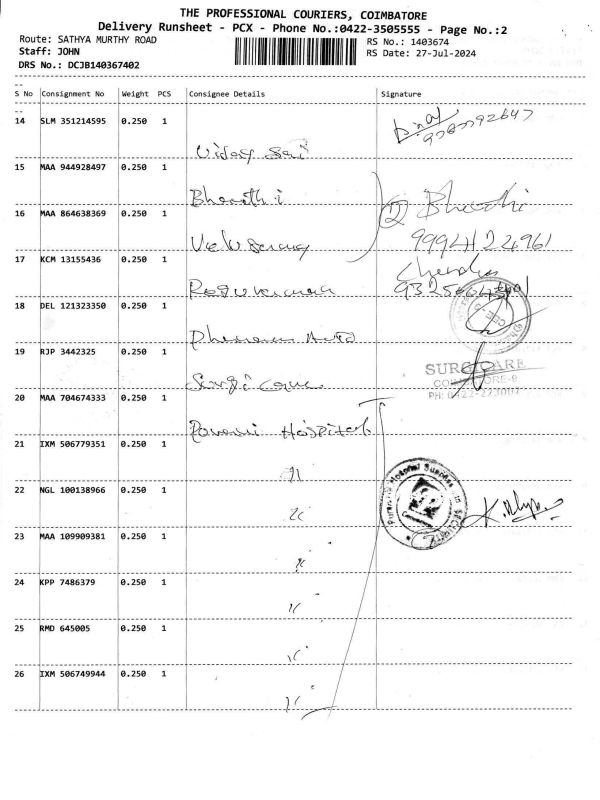 THE PROFESSIONAL COURIERS, COIMBATORE
Delivery Runsheet - PCX - Phone No.:0422-3505555 - Page No.:2
Route: SATHYA MURTHY ROAD
RS No.: 1403674
Staff: JOHN
RS Date: 27-Jul-2024
DRS No.: DCJB140367402
S No Consignment No Weight PCS Consignee Details Signature
14 SLM 351214595 0.250 1
15 MAA 944928497 0.250 1 Bharathi
16 MAA 864638369 0.250 1
9994124961
17 KCM 13155436 0.250 1
18 DEL 121323350 0.250 1
19 RJP 3442325 0.250 1
SURGICARE
20 MAA 704674333 0.250 1 Hospital
21 IXM 506779351 0.250 1
22 NGL 100138966 0.250 1
23 MAA 109909381 0.250 1
24 KPP 7486379 0.250 1
25 RMD 645005 0.250 1
26 IXM 506749944 0.250 1